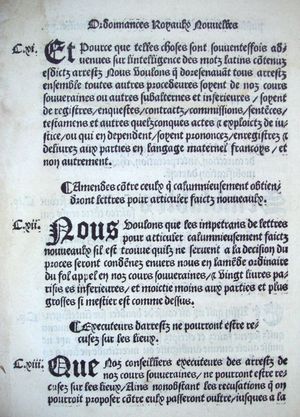 Ordonnances Royaulx Nouvelles
C.xi. Et Pource que telles choses sont souuenteffois ad-
uenues sur lintelligence des motz latins cõtenuz
esdictz arrestz Nous voulons q̃ doresenauãt tous arrestz
ensemble toutes autres procedures soyent de noz cours
souueraines ou autres subalternes et inferieures, soyent
de registres, enquestes, contractz, commissions, sentẽces,
testamens et autres quelzconques actes & exploictz de iu-
stice, ou qui en dependent, soyent prononcez, enregistrez &
deliurez aux parties en langage maternel francoys, et
non autrement.
Amendes cõtre ceulx q̃ calumnieusement obtien-
dront lettres pour articuler faictz nouueaulx.
C.xii. Nous Voulons que les impetrans de lettres
pour articuler calumnieusement faictz
nouueaulx sil est trouue quilz ne seruent a la decision du
proces seront condẽnez enuers nous en lamẽde ordinaire
du fol appel en noz cours souueraines, & vingt liures pari-
sis es inferieures, et moictie moins aux parties et plus
grosses si mestier est comme dessus.
Executeurs darrestz ne pourront estre re-
cusez sur les lieux.
C.xiii. Que Noz conseilliers executeurs des arrestz de
noz cours souueraines, ne pourront estre re-
cusez sur les lieux, Ains nonobstant les recusations q̃ on
pourroit proposer cõtre eulx passeront oultre, iusques a la